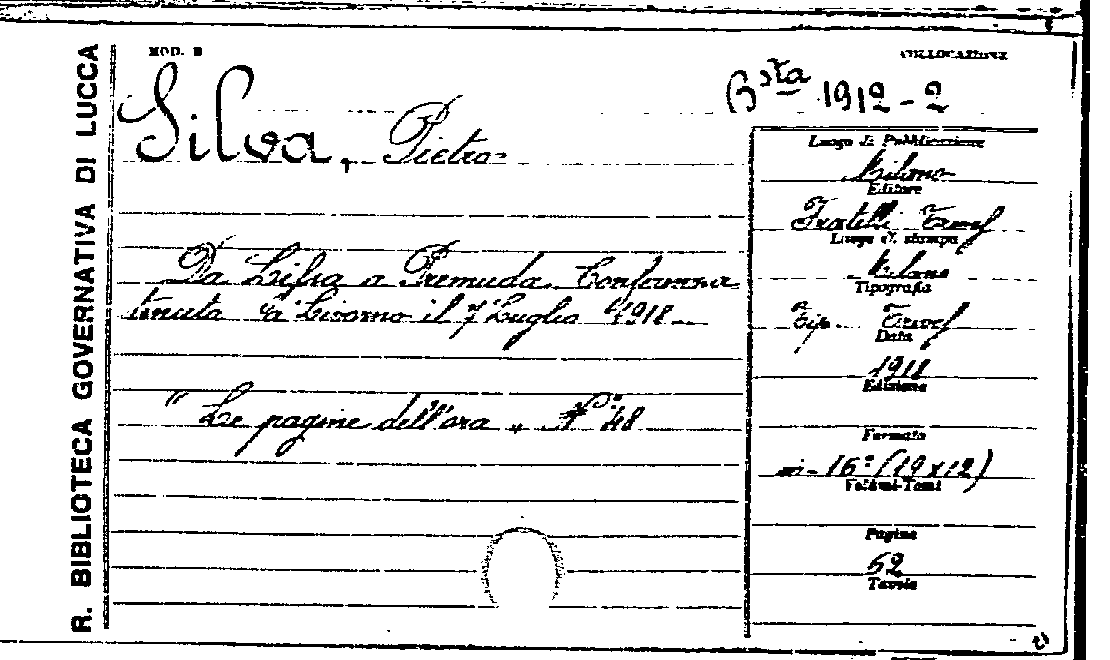 R. BIBLIOTECA GOVERNATIVA DI LUCCA
MOD. B
COLLOCAZIONE
Bsta 1912-2
Silva, Pietro
Da Lissa a Premuda. Conferenza
tenuta a Livorno il 7 Luglio 1918
"Le pagine dell'ora" N° 48
Luogo di Pubblicazione
Milano
Editore
Fratelli Treves
Luogo di stampa
Milano
Tipografia
Tip. Treves
Data
1918
Edizione
Formato
in-16° (19x12)
Volumi-Tomi
Pagine
52
Tavole